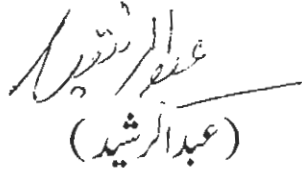 عبدالرشید
(عبدالرشید)